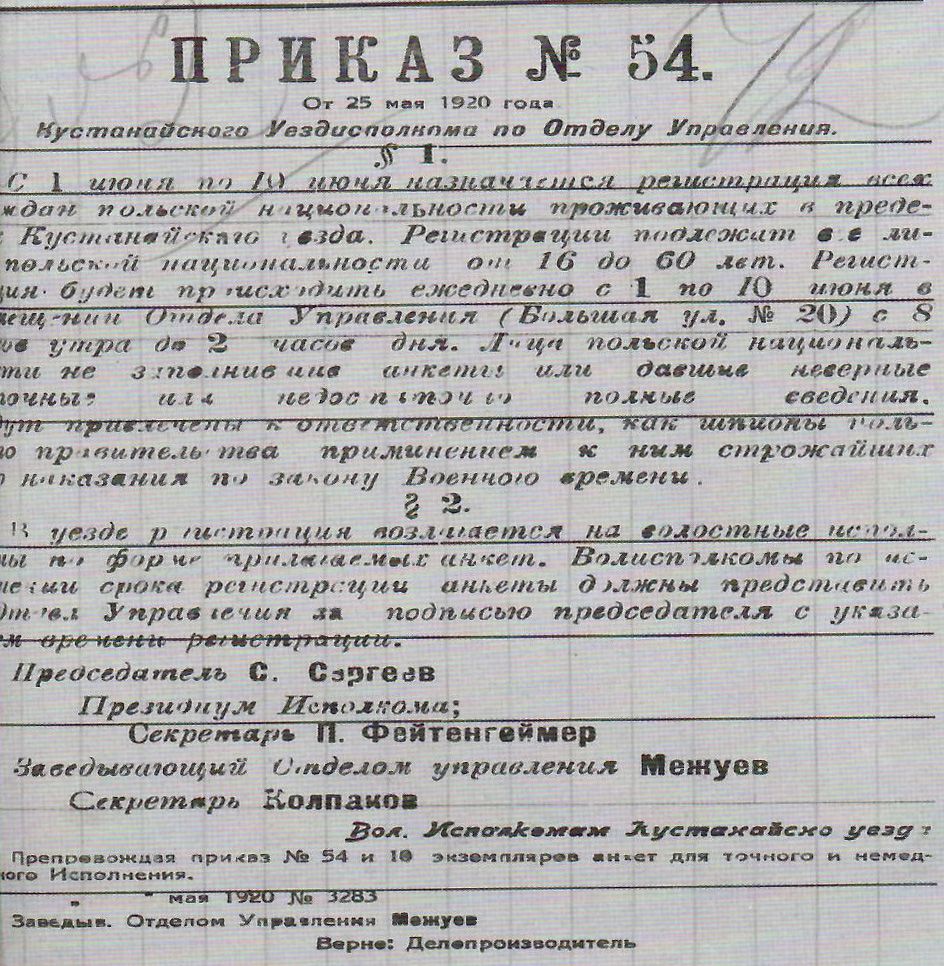 ПРИКАЗ № 54.
От 25 мая 1920 года
Кустанайского Уездисполкома по Отделу Управления.
§ 1.
С 1 июня по 10 июня назначается регистрация всех
ждан польской национальности проживающих в преде-
Кустанайского уезда. Регистрации подлежат все ли-
польской национальности от 16 до 60 лет. Регист-
ция будет происходить ежедневно с 1 по 10 июня в
мещении Отдела Управления (Большая ул. № 20) с 8
ов утра до 2 часов дня. Лица польской националь-
ти не заполнившие анкеты или давшие неверные
точные или недостаточно полные сведения.
дут привлечены к ответственности, как шпионы поль-
го правительства приминением к ним строжайших
наказания по закону Военного времени.
§ 2.
В уезде регистрация возлагается на волостные испол-
мы по форме прилагаемых анкет. Волисполкомы по ис-
чении срока регистрации анкеты должны представить
Управления за подписью председателя с указа-
м времени регистрации.
Председатель С. Сэргеев
Президиум Исполкома;
Секретарь П. Фейтенгеймер
Заведывающий Отделом управления Межуев
Секретарь Колпаков
Вол. Исполкомам Кустанайско уезд
Препровождая приказ № 54 и 10 экземпляров анкет для точного и немед-
ного Исполнения.
„ " мая 1920 № 3283
Заведыв. Отделом Управления Межуев
Верне: Делопроизводитель